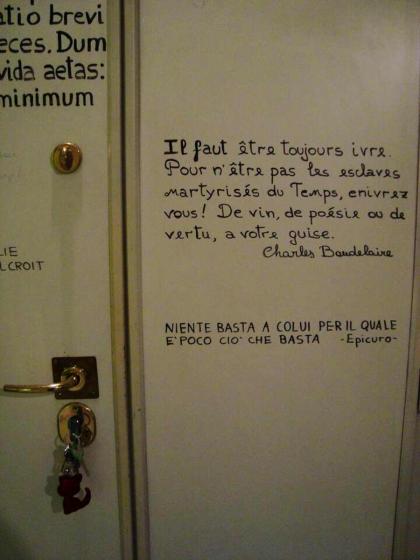 atio brevi
eces. Dum
vida aetas:
minimum
LIE
LCROIT
Il faut être toujours ivre.
Pour n'être pas les esclaves
martyrisés du Temps, enivrez
vous! De vin, de poésie ou de
vertu, a votre guise.
Charles Baudelaire
NIENTE BASTA A COLUI PER IL QUALE
E' POCO CIO' CHE BASTA -Epicuro-